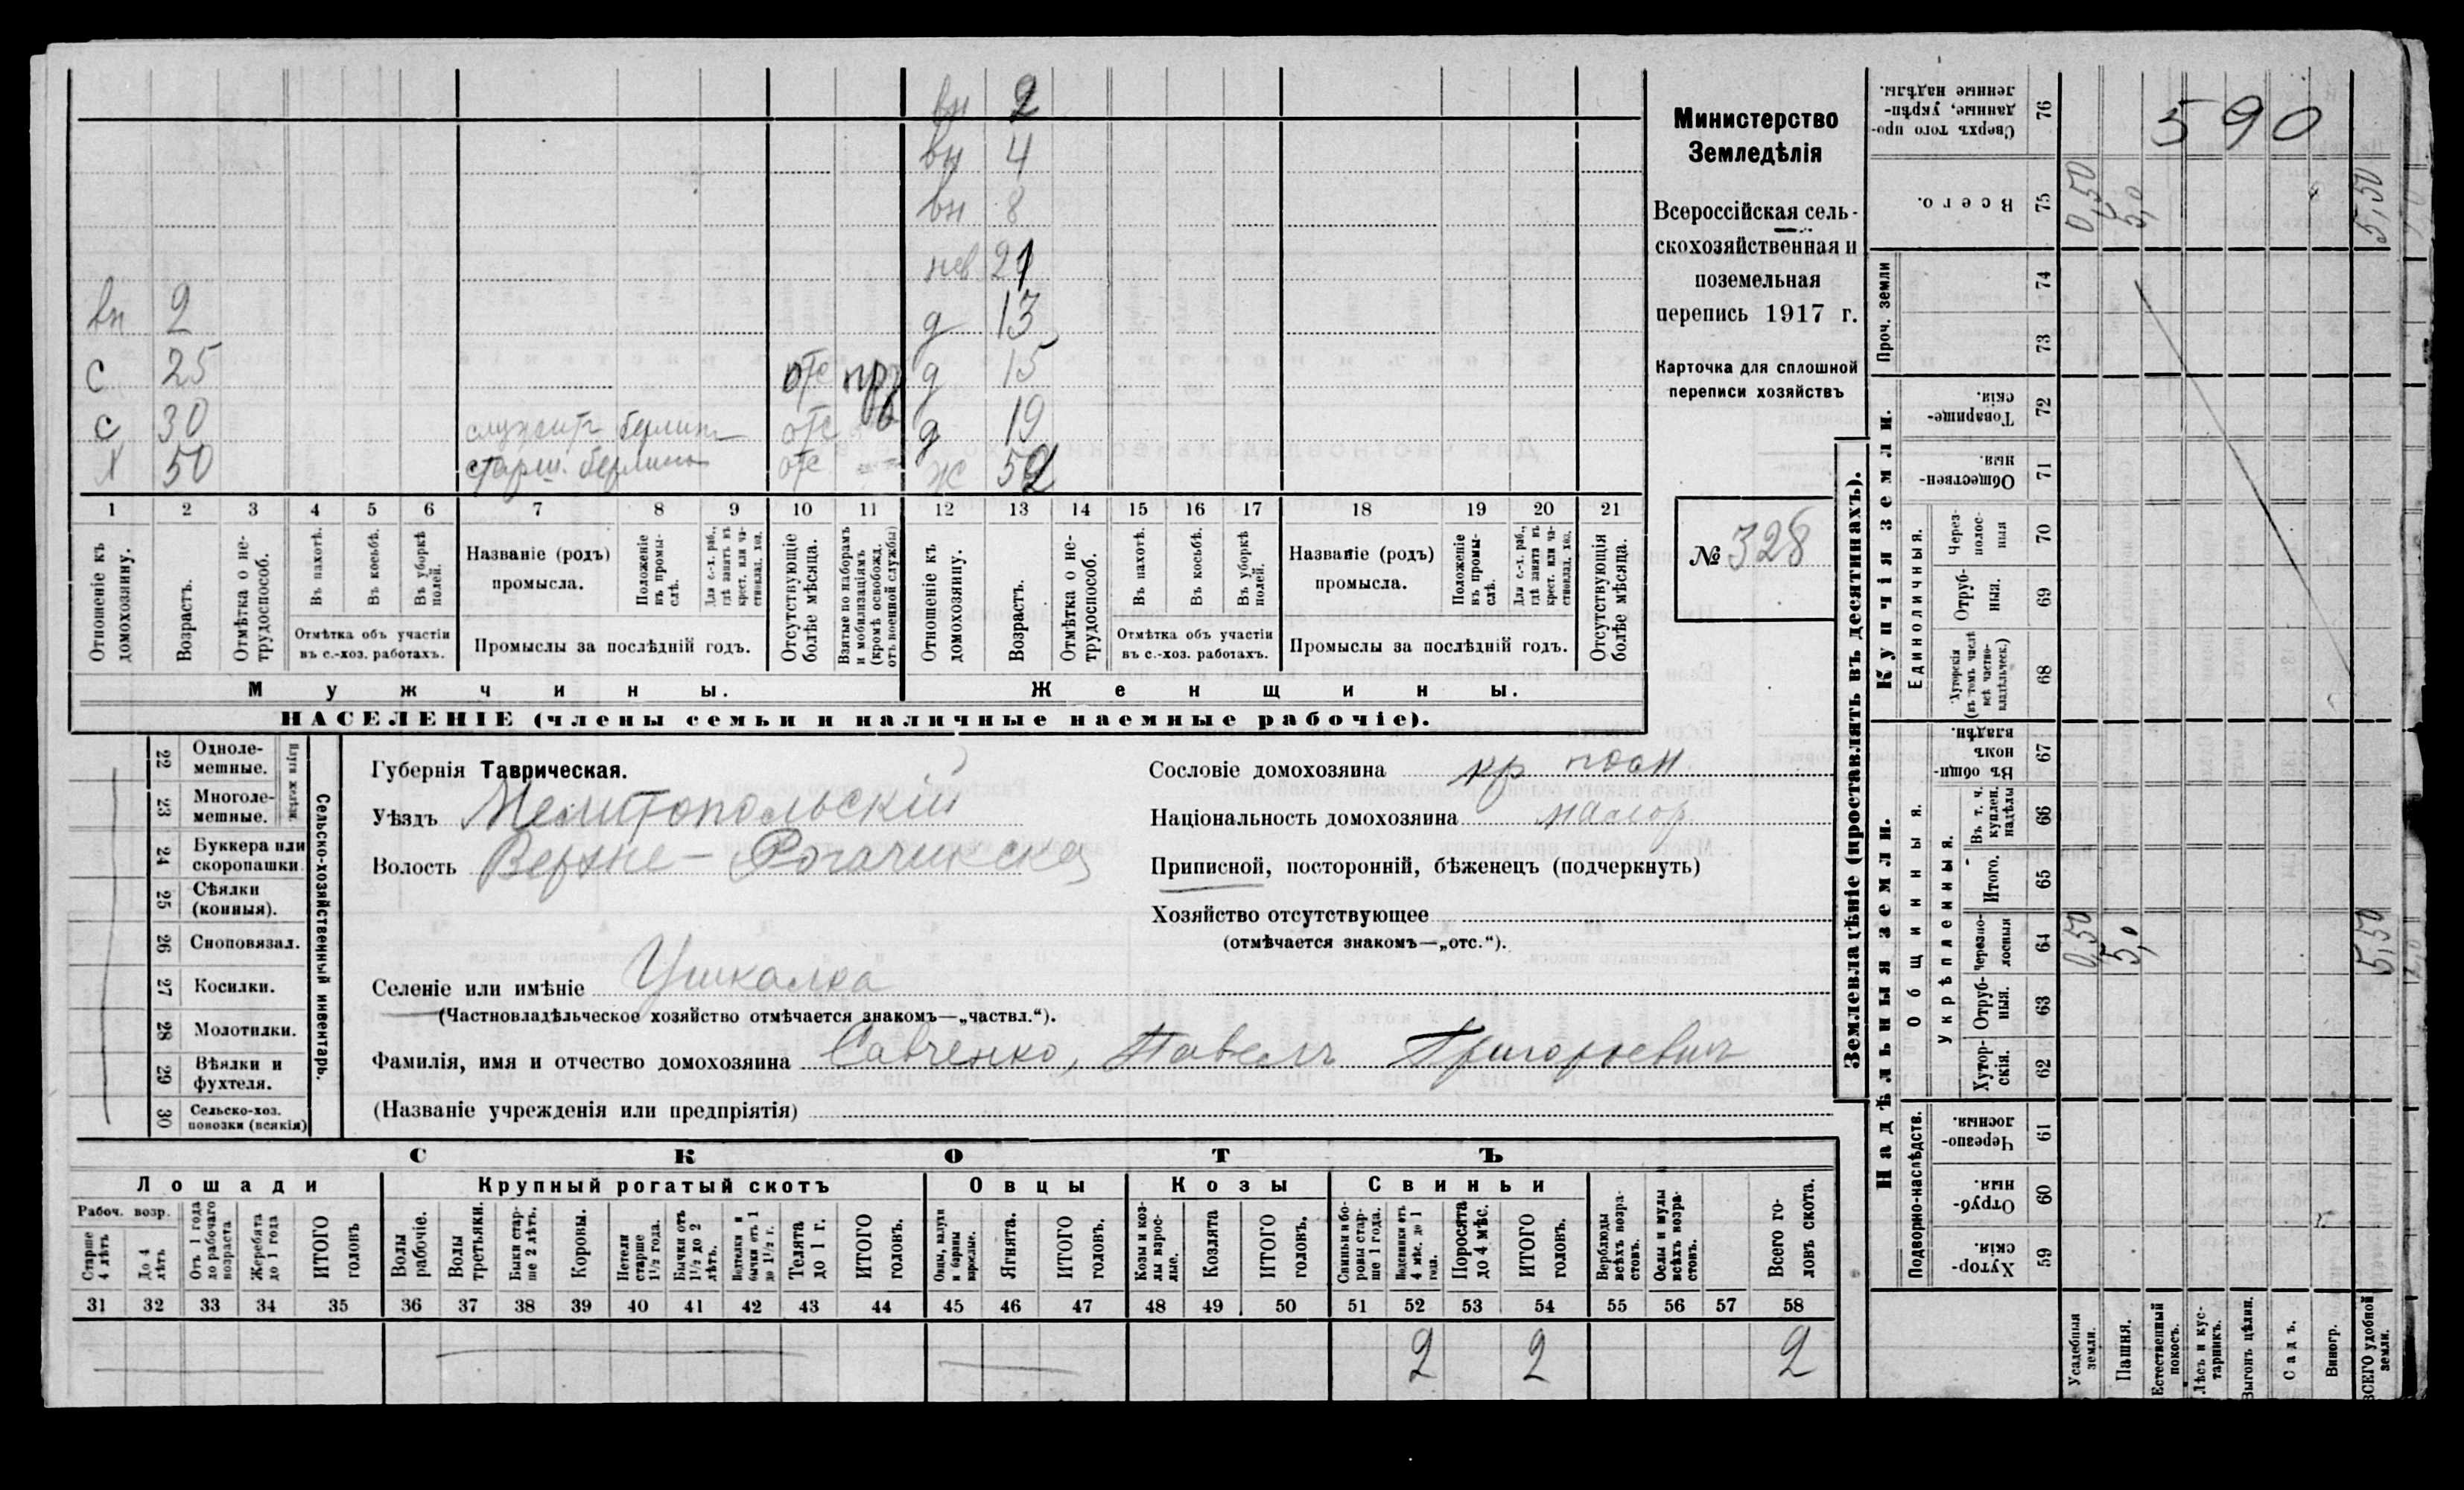 вн 2
вн 4
вн 8
нев 21
вн 2 д 13
с 25 отс д 15
с 30 служит отс д 19
Х 50 старш. отс ж 52
1 2 3 4 5 6 7 8 9 10 11 12 13 14 15 16 17 18 19 20 21
Отношеніе къ домохозяину.
Возрастъ.
Отмѣтка о не-трудоспособ.
Въ пахотѣ.
Въ косьбѣ.
Въ уборкѣ полей.
Отмѣтка объ участіи
въ с.-хоз. работахъ.
Названіе (родъ)
промысла.
Положеніе въ промы-слѣ.
Для с.-х. раб., гдѣ занятъ въ крест. или ча-стновлад. хоз.
Промыслы за послѣдній годъ.
Отсутствующіе болѣе мѣсяца.
Взятые по наборамъ и мобилизаціямъ (кромѣ освобожд. отъ военной службы)
Отношеніе къ домохозяину.
Возрастъ.
Отмѣтка о не-трудоспособ.
Въ пахотѣ.
Въ косьбѣ.
Въ уборкѣ полей.
Отмѣтка объ участіи
въ с.-хоз. работахъ.
Названіе (родъ)
промысла.
Положеніе въ промы-слѣ.
Для с.-х. раб., гдѣ занятъ въ крест. или ча-стновлад. хоз.
Промыслы за послѣдній годъ.
Отсутствующія болѣе мѣсяца.
Мужчины. Женщины.
НАСЕЛЕНІЕ (члены семьи и наличные наемные рабочіе).
Министерство
Земледѣлія
Всероссійская сель-
скохозяйственная и
поземельная
перепись 1917 г.
Карточка для сплошной
переписи хозяйствъ
№ 328
22 Одноле-мешные.
23 Многоле-мешные.
24 Буккера или скоропашки
25 Сѣялки (конныя).
26 Сноповязал.
27 Косилки.
28 Молотилки.
29 Вѣялки и фухтеля.
30 Сельско-хоз. повозки (всякія)
Сельско-хозяйственный инвентарь.
Губернія Таврическая.
Уѣздъ Мелитопольскій
Волость Верхне-Рогачикская
Селеніе или имѣніе Ушкалка
(Частновладѣльческое хозяйство отмѣчается знакомъ—„частвл.“).
Фамилія, имя и отчество домохозяина Савченко, Павелъ Григорьевич
(Названіе учрежденія или предпріятія)
Сословіе домохозяина кр
Національность домохозяина малор
Приписной, посторонній, бѣженецъ (подчеркнуть)
Хозяйство отсутствующее
(отмѣчается знакомъ—„отс.“).
СКОТЪ
Лошади Крупный рогатый скотъ Овцы Козы Свиньи
Рабоч. возр.
Старше 4 лѣтъ
До 4 лѣтъ
Отъ 1 года до рабочаго возраста
Жеребята до 1 года
ИТОГО головъ
Волы рабочіе.
Волы третьяки.
Быки стар-ше 2 лѣтъ.
Коровы.
Нетели старше 1½ года.
Бычки отъ 1½ до 2 лѣтъ.
Телята до 1 г.
ИТОГО головъ.
Ягнята.
ИТОГО головъ.
Козы и коз-лы взрос-лые.
Козлята
ИТОГО головъ.
Свиньи и бо-ровы стар-ше 1 года.
Подсвинки отъ 4 мѣс. до 1 года.
Поросята до 4 мѣс.
ИТОГО головъ.
Верблюды всѣхъ возра-стовъ.
Ослы и мулы всѣхъ возра-стовъ.
Всего го-ловъ скота.
31 32 33 34 35 36 37 38 39 40 41 42 43 44 45 46 47 48 49 50 51 52 53 54 55 56 57 58
2 2 2
Землевладѣніе (проставлять въ десятинахъ).
Купчія земли.
Надѣльныя земли.
Сверхъ того про-данные, укрѣп-ленные надѣлы. 76
Всего. 75
Проч. земли 74 73
Товарище-скія. 72
Обществен-ныя. 71
Единоличныя.
Через-полос-ныя 70
Отруб-ныя. 69
Хуторскія (въ томъ числѣ всѣ частно-владѣльческ.) 68
Общинныя.
Въ общи-номъ владѣн. 67
Укрѣпленныя.
Въ т. ч. куплен. надѣлы 66
Итого. 65
Черезпо-лосныя 64
Отруб-ныя. 63
Хутор-скія. 62
Подворно-наслѣдств.
Черезпо-лосныя. 61
Отруб-ныя. 60
Хутор-скія. 59
Усадебныя земли.
Пашня.
Естественный покосъ.
Лѣсъ и кус-тарникъ.
Выгонъ цѣлин.
Садъ.
Виногр.
ВСЕГО удобной земли.
590
0,50 5,0 5,50
0,50 5,0 5,50